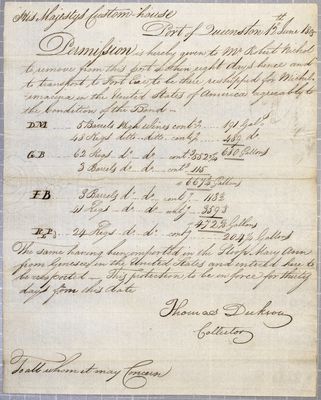 His Majestys Custom house
Port of Queenston 13th June 180
Permission is hereby given to Mr Robert Nichol
to remove from this port within eight days hence and
to transport to Fort Erie to be there reshipped for Michili
imacinac in the United States of America agreeably to
the Condition of the Bond
DM 5 Barrels High Wines contg 191 Galls
43 Kegs ditto ditto contg 489 do
680 Gallons
GB 62 Kegs do do contg 552
3 Barrels do do contg 115
667 Gallons
IB 3 Barrels do do contg 118
41 Kegs do do contg 359
Gallons
24 Kegs do do contg 204 Gallons
The same having been imported in the Sloop Mary Ann
from Genesee in the United States and entered here to
be reexported This protection to be in force for thirty
days from this date
Thomas Dickson
Collector
To all whom it may Concern